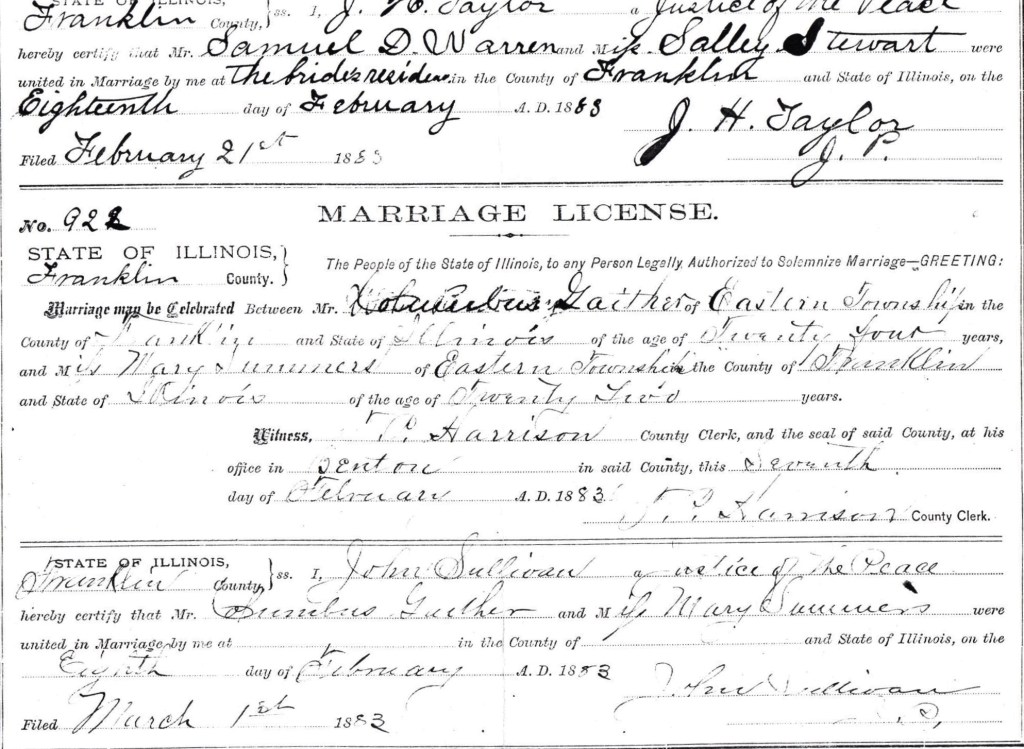 STATE OF ILLINOIS,
Franklin County, ss. I, J. H. Taylor a Justice of the Peace
hereby certify that Mr. Samuel D. Warren and Miss Salley Stewart were
united in Marriage by me at the bride's residence in the County of Franklin and State of Illinois, on the
Eighteenth day of February A. D. 1883
J. H. Taylor
Filed February 21st 1883 J. P.
No. 922 MARRIAGE LICENSE.
STATE OF ILLINOIS,
Franklin County. The People of the State of Illinois, to any Person Legally Authorized to Solemnize Marriage—GREETING:
Marriage may be Celebrated Between Mr. Gaither of Eastern Township in the
County of Franklin and State of Illinois of the age of Twenty four years,
and Miss Mary Summers of Eastern Township in the County of Franklin
and State of Illinois of the age of Twenty Two years.
Witness, Harrison County Clerk, and the seal of said County, at his
office in Benton in said County, this Seventh
day of February A. D. 1883
Harrison County Clerk.
STATE OF ILLINOIS,
Franklin County, ss. I, John Sullivan a Justice of the Peace
hereby certify that Mr. and Miss Mary Summers were
united in Marriage by me at in the County of and State of Illinois, on the
Eighth day of February A. D. 1883
John Sullivan
Filed March 1st 1883 J. P.